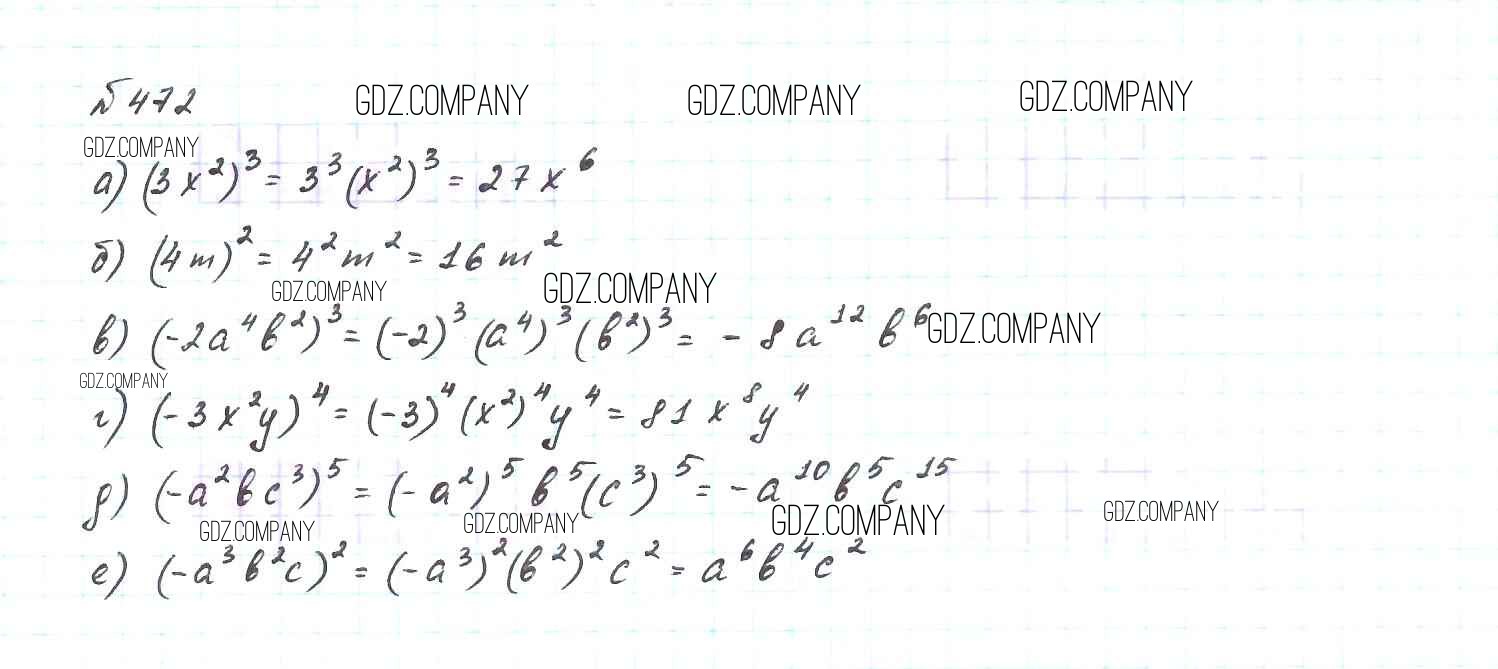 № 472 GDZ.COMPANY GDZ.COMPANY GDZ.COMPANY
GDZ.COMPANY
а) (3x²)³ = 3³(x²)³ = 27x⁶
б) (4m)² = 4²m² = 16m²
GDZ.COMPANY GDZ.COMPANY
в) (-2a⁴b²)³ = (-2)³(a⁴)³(b²)³ = -8a¹²b⁶ GDZ.COMPANY
GDZ.COMPANY
г) (-3x²y)⁴ = (-3)⁴(x²)⁴y⁴ = 81x⁸y⁴
д) (-a²bc³)⁵ = (-a²)⁵b⁵(c³)⁵ = -a¹⁰b⁵c¹⁵
GDZ.COMPANY GDZ.COMPANY GDZ.COMPANY GDZ.COMPANY
е) (-a³b²c)² = (-a³)²(b²)²c² = a⁶b⁴c²